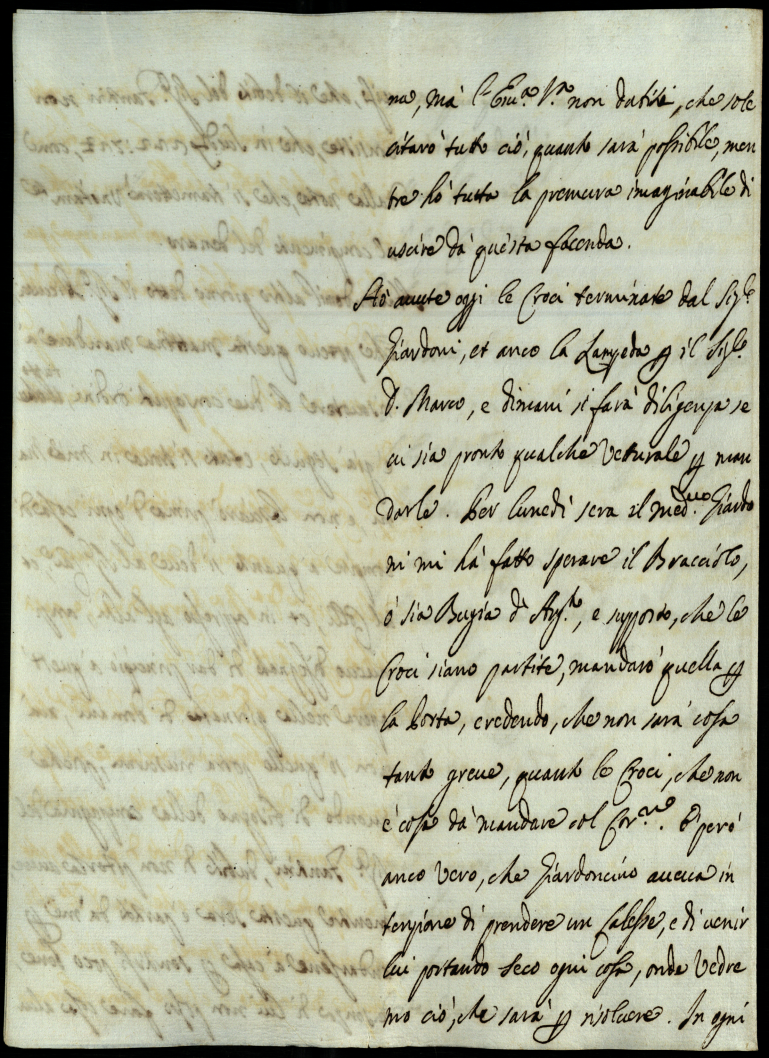 na, mà l'Ecc.ª V.ª non dubiti, che sole
citarò tutto ciò, quanto sarà possibile, men
tre hò tutta la premura imaginabile di
uscire dà questa facenda.
Hò avute oggi le Croci terminate dal Sig.r
Giardoni, et anco la Lampeda p il Sig.r
D. Marco, e dimani si farà diligenza se
ci sia pronto qualche Vetturale p man
darle. Per lunedì sera il med.mo Giardo
ni mi hà fatto sperare il Bracciolo,
ò sia Bugia d'Arg.to, e supposto, che le
Croci siano partite, mandarò quella p
la Posta, credendo, che non sarà cosa
tanto greve, quanto le Croci, che non
è cosa dà mandare col Cor.re. È però
anco Vero, che Giardoncino aveva in
tenzione di prendere un Calesse, e di venir
lui portando seco ogni cosa, onde Vedre
mo ciò, che sarà p risolvere. In ogni